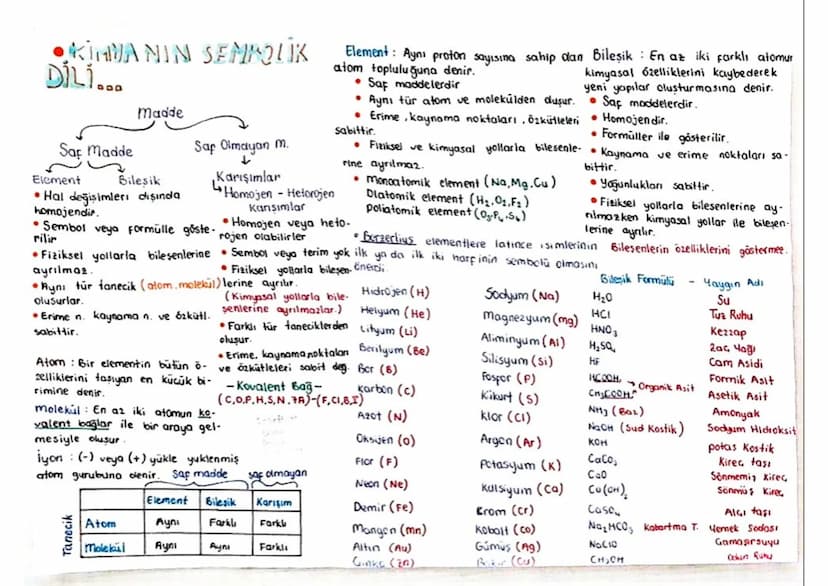 • KİMYANIN SEMBOLİK
DİLİ...
Madde
Saf Madde
Saf Olmayan M.
Element
Bileşik
Karışımlar
Homojen - Heterojen
Karışımlar
• Hal değişimleri dışında
homojendir.
• Sembol veya formülle göste-
rilir
• Fiziksel yollarla bileşenlerine
ayrılmaz.
• Aynı tür tanecik (atom, molekül)
oluşurlar.
• Erime n. kaynama n. ve özkütl.
sabittir.
• Homojen veya hete-
rojen olabilirler
• Sembol veya terim yok
• Fiziksel yollarla bileşen-
lerine ayrılır.
(Kimyasal yollarla bile-
şenlerine ayrılmazlar.)
• Farklı tür taneciklerden
oluşur.
• Erime, kaynama noktaları
ve özkütleleri sabit değ.
- Kovalent Bağ -
(C,O,P,H,S,N, )-(F,Cl,B,I)
Atom : Bir elementin bütün ö-
zelliklerini taşıyan en küçük bi-
rimine denir.
Molekül : En az iki atomun ko-
valent bağlar ile bir araya gel-
mesiyle oluşur.
İyon : (-) veya (+) yükle yüklenmiş
atom gurubuna denir.
Saf madde
saf olmayan
Element Bileşik Karışım
Tanecik
Atom Aynı Farklı Farklı
Molekül Aynı Aynı Farklı
Element : Aynı proton sayısına sahip olan
atom topluluğuna denir.
• Saf maddelerdir
• Aynı tür atom ve molekülden oluşur.
• Erime, kaynama noktaları, özkütleleri
sabittir.
• Fiziksel ve kimyasal yollarla bileşenle-
rine ayrılmaz.
• Monoatomik element (Na, Mg, Cu)
Diatomik element (H₂, O₂, F₂)
Poliatomik element (O₃, P₄, S₈)
• Berzelius elementlere latince isimlerinin
ilk ya da ilk iki harfinin sembolü olmasını
önerdi.
Hidrojen (H)
Helyum (He)
Lityum (Li)
Berilyum (Be)
Bor (B)
Karbon (C)
Azot (N)
Oksijen (O)
Flor (F)
Neon (Ne)
Demir (Fe)
Mangan (mn)
Altın (Au)
Çinko (Zn)
Sodyum (Na)
Magnezyum (mg)
Aliminyum (Al)
Silisyum (Si)
Fosfor (P)
Kükürt (S)
Klor (Cl)
Argon (Ar)
Potasyum (K)
Kalsiyum (Ca)
Krom (Cr)
Kobalt (Co)
Gümüş (Ag)
Bakır (Cu)
Bileşik : En az iki farklı atomun
kimyasal özelliklerini kaybederek
yeni yapılar oluşturmasına denir.
• Saf maddelerdir.
• Homojendir.
• Formüller ile gösterilir.
• Kaynama ve erime noktaları sa-
bittir.
• Yoğunlukları sabittir.
• Fiziksel yollarla bileşenlerine ay-
rılmazken kimyasal yollar ile bileşen-
lerine ayrılır.
Bileşenlerin özelliklerini göstermez.
Bileşik Formülü - Yaygın Adı
H₂O Su
HCl Tuz Ruhu
HNO₃ Kezzap
H₂SO₄ Zaç Yağı
HF Cam Asidi
HCOOH Formik Asit
Organik Asit
CH₃COOH Asetik Asit
NH₃ (Baz) Amonyak
NaOH (Sud Kostik) Sodyum Hidroksit
KOH potas Kostik
CaCO₃ Kireç taşı
CaO Sönmemiş Kireç
Ca(OH)₂ Sönmüş Kireç
CaSO₄ Alçı taşı
Na₂HCO₃ Kabartma T. Yemek Sodası
NaClO Çamaşırsuyu
CH₃OH
Ruhu